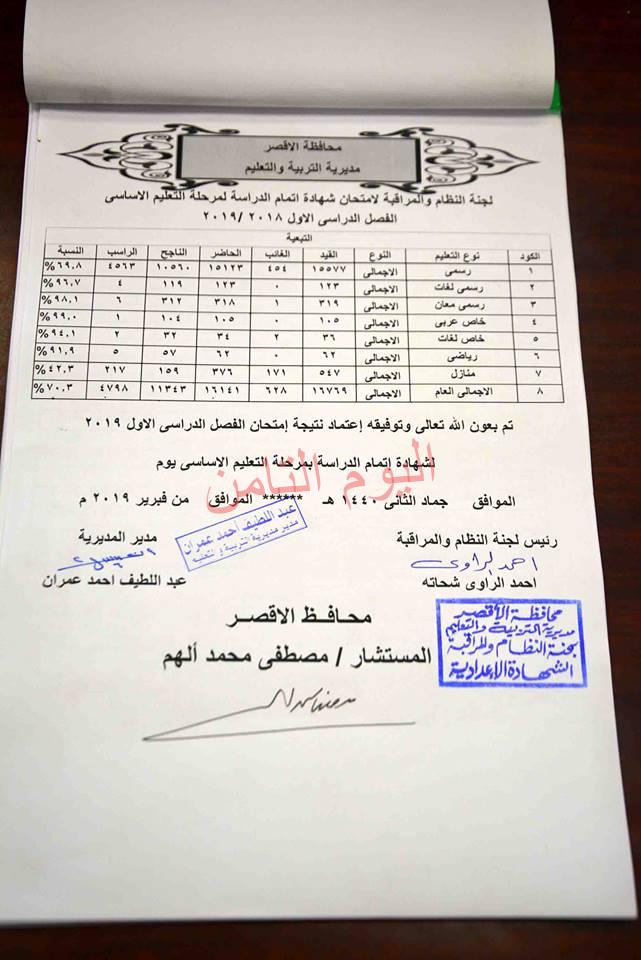 محافظة الاقصر
مديرية التربية والتعليم
لجنة النظام والمراقبة لامتحان شهادة اتمام الدراسة لمرحلة التعليم الاساسى
الفصل الدراسى الاول ٢٠١٨ /٢٠١٩
التبعية
الكود نوع التعليم النوع القيد الغائب الحاضر الناجح الراسب النسبة
١ رسمى الاجمالى ١٥٥٧٧ ٤٥٤ ١٥١٢٣ ١٠٥٦٠ ٤٥٦٣ ٦٩.٨%
٢ رسمى لغات الاجمالى ١٢٣ ٠ ١٢٣ ١١٩ ٤ ٩٦.٧%
٣ رسمى معان الاجمالى ٣١٩ ١ ٣١٨ ٣١٢ ٦ ٩٨.١%
٤ خاص عربى الاجمالى ١٠٥ ٠ ١٠٥ ١٠٤ ١ ٩٩.٠%
٥ خاص لغات الاجمالى ٣٦ ٢ ٣٤ ٣٢ ٢ ٩٤.١%
٦ رياضى الاجمالى ٦٢ ٠ ٦٢ ٥٧ ٥ ٩١.٩%
٧ منازل الاجمالى ٥٤٧ ١٧١ ٣٧٦ ١٥٩ ٢١٧ ٤٢.٣%
٨ الاجمالى العام الاجمالى ١٦٧٦٩ ٦٢٨ ١٦١٤١ ١١٣٤٣ ٤٧٩٨ ٧٠.٣%
تم بعون الله تعالى وتوفيقه إعتماد نتيجة إمتحان الفصل الدراسى الاول ٢٠١٩
لشهادة إتمام الدراسة بمرحلة التعليم الاساسى يوم
اليوم الثامن
الموافق جماد الثانى ١٤٤٠ هـ ****** الموافق من فبرير ٢٠١٩ م
عبد اللطيف أحمد عمران
مدير مديرية التربية و التعليم
رئيس لجنة النظام والمراقبة مدير المديرية
احمد الراوى
احمد الراوى شحاته عبد اللطيف احمد عمران
محافظ الاقصر
المستشار / مصطفى محمد ألهم
محافظة الأقصر
مديرية التربية والتعليم
لجنة النظام والمراقبة
الشهادة الإعدادية